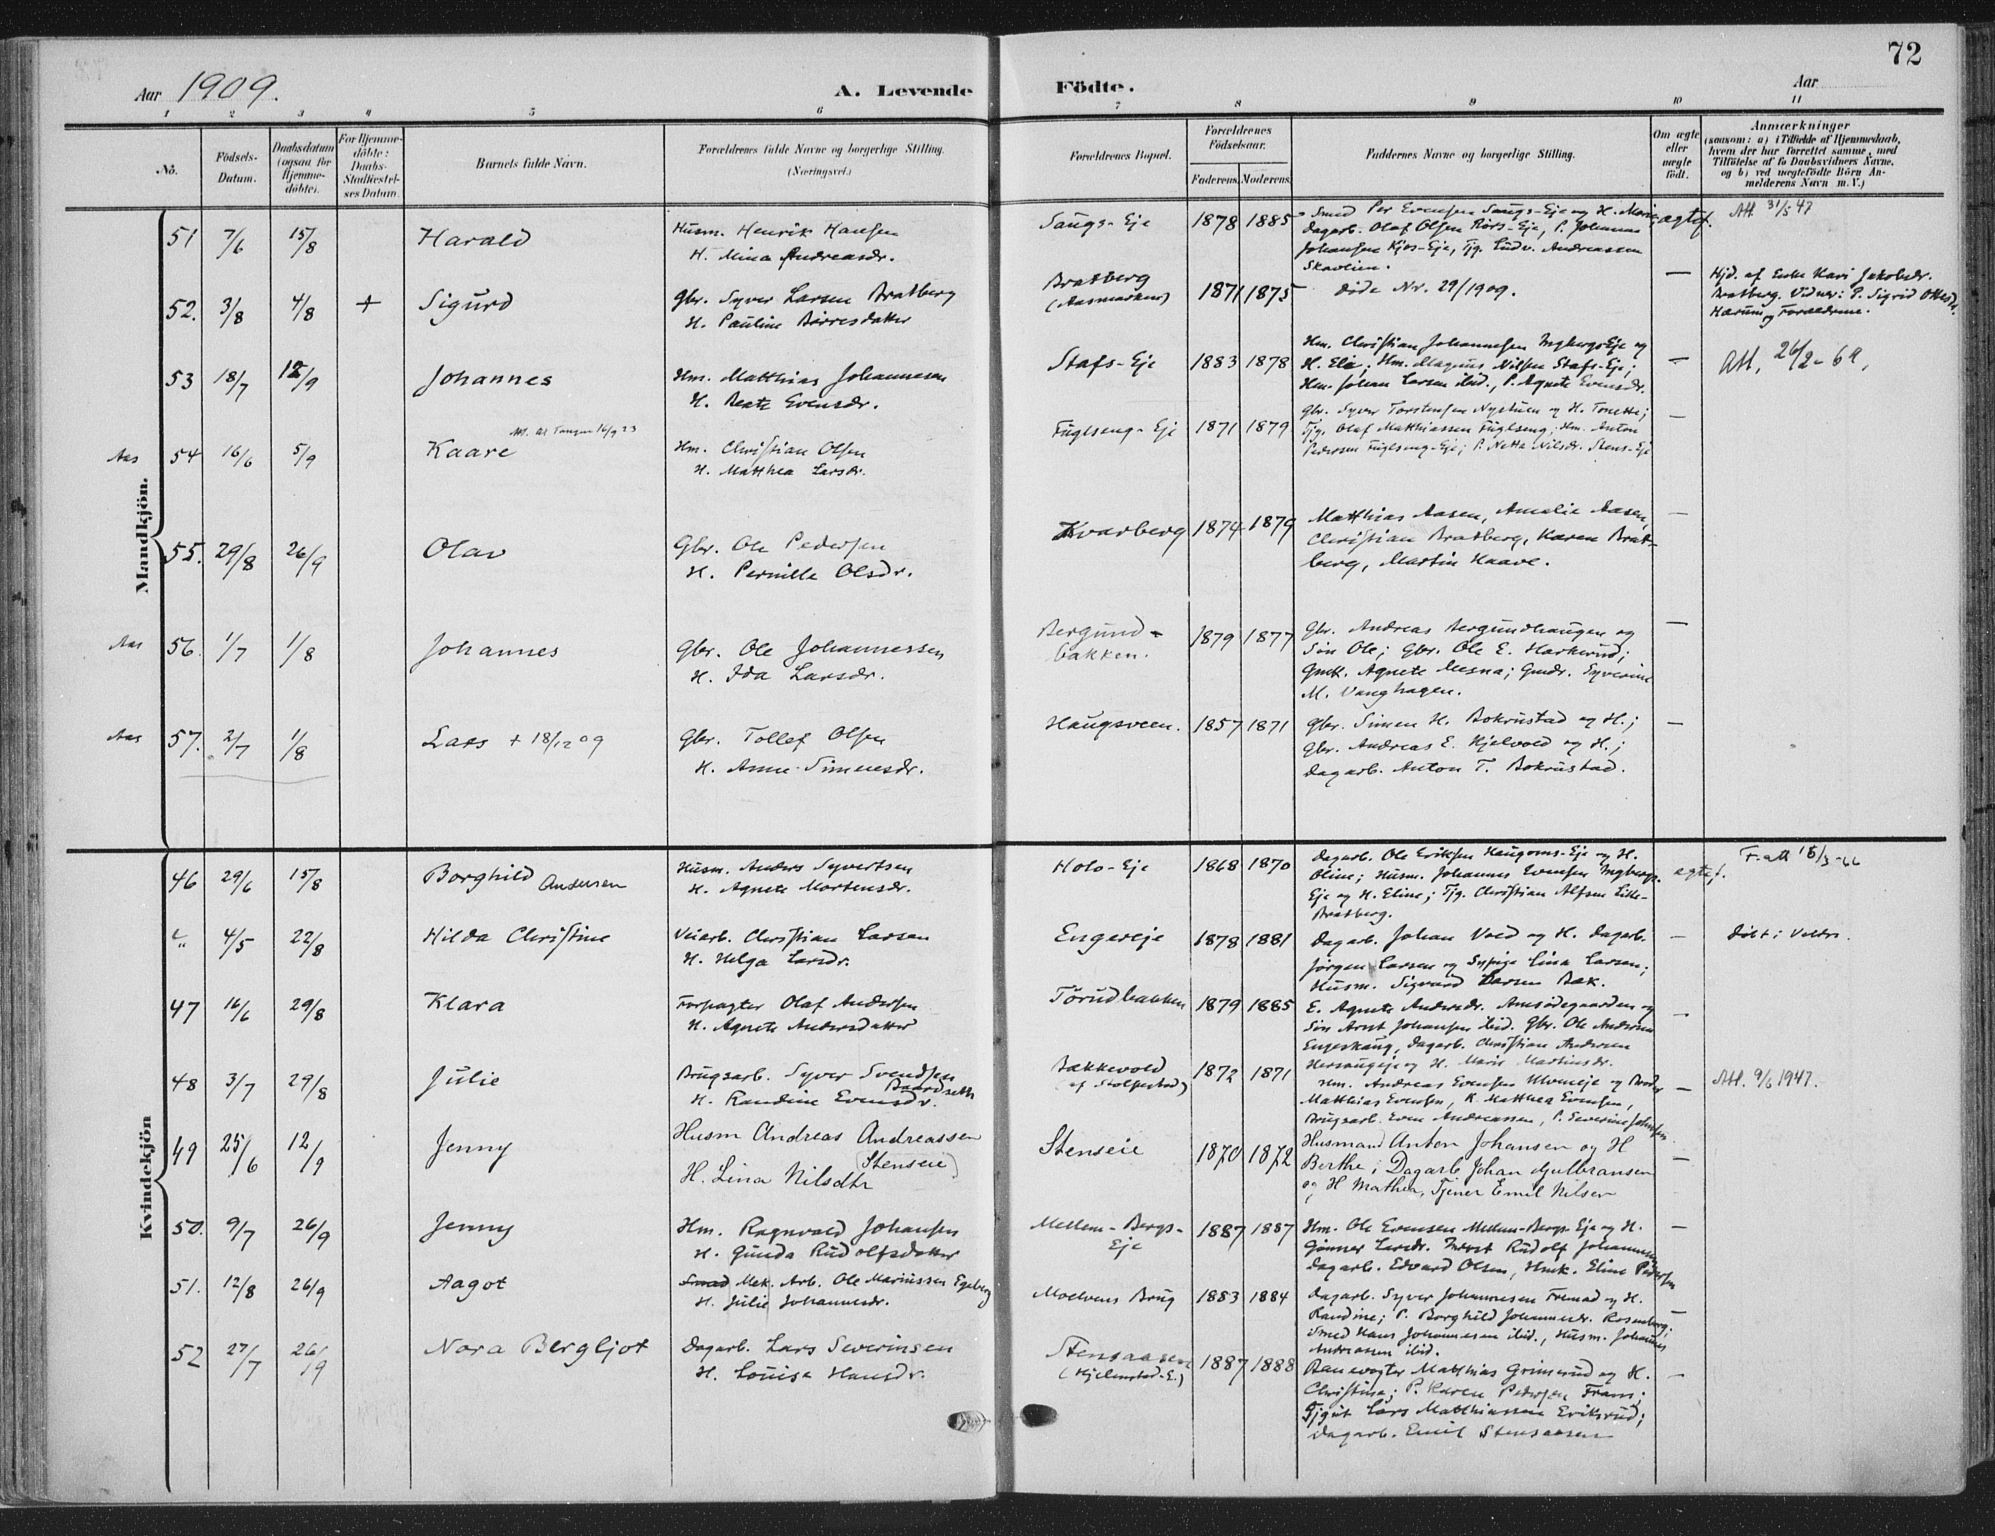 72
Aar 1909.
A. Levende Födte.
Aar
1 2 3 4 5 6 7 8 9 10 11
No.
Födsels-Datum.
Daabsdatum (ogsaa for Hjemme-döbte).
For Hjemme-döbte: Daabs-Stadfæstel-ses Datum.
Barnets fulde Navn.
Forældrenes fulde Navne og borgerlige Stilling. (Næringsvei.)
Forældrenes Bopæl.
Forældrenes Födselsaar.
Faderens. Moderens.
Faddernes Navne og borgerlige Stilling.
Om ægte eller uægte födt.
Anmærkninger
(saasom: a) i Tilfælde af Hjemmedaab, hvem der har forrettet samme, med Tilföielse af to Daabsvidners Navne, og b) ved uægtefödte Börn Anmelderens Navn m. V.)
Mandkjön.
51 7/6 15/8 Harald
Husm. Henrik Hansen
H. Mina Andreasdr.
Saugs-Eje 1878 1885
Smed Per Evensen Saugs-Eje og H. Marie;
Dagarb. Olaf Olsen Rörs-Eje, P. Johanna
Johansen Kjos-Eje, Tjg. Ludv. Andreassen
Skavlien.
ægtef.
Att. 31/5 47
52. 3/8 4/8 + Sigurd
Gbr. Syver Larsen Bratberg
H. Pauline Börresdatter
Bratberg
(Aasmarken) 1871 1875
Döde Nr. 29/1909.
—
Hjd. af Enke Kari Jakobsdr.
Bratberg. Vidner: P. Sigrid
og Forældrene.
53 18/7 12/9 Johannes
Hm. Matthias Johannesen
H. Beate Evensdr.
Stafs-Eje 1883 1878
Hm. Christian Johannesen Ingbergs-Eje og
H. Elie; Hm. Magnus Nilsen Stafs-Eje;
Hm. Johan Larsen ibid., P. Agnete Evensdr.
—
Att. 26/2-69.
Aas 54 16/6 5/9 Kaare
16/9 23
Hm. Christian Olsen
H. Matthea Larsdr.
Fuglseng-Eje 1871 1879
Gbr. Syver Torstensen Nystuen og H. Tonette;
Tjg. Olaf Matthiassen Fuglseng; Hm. Anton
Pedersen Fuglseng-Eje; P. Netta Nilsdr. Stens-Eje
—
55. 29/8 26/9 Olav
Gbr. Ole Pedersen
H. Pernille Olsdr.
Kvarberg 1874 1879
Matthias Aasen, Amalie Aasen,
Christian Bratberg, Karen Brat-
berg, Martin Haave.
—
Aas 56. 1/7 1/8 Johannes
Gbr. Ole Johannessen
H. Ida Larsdr.
Bergund-
bakken. 1879 1877
Gbr. Andreas Bergundhaugen og
Sön Ole; Gbr. Ole E. Harkerud;
Gmk. Agnete Mesna; Gmdr. Syverine
M. Vanghagen.
—
Aas 57. 2/7 1/8 Lars + 18/12 09
Gbr. Tollef Olsen
H. Anne Simensdr.
Haugsveen. 1857 1871
Gbr. Simen H. Bokrustad og H.;
Gbr. Andreas E. Kjelvold og H.;
Dagarb. Anton T. Bokrustad.
—
Kvindekjön
46 29/6 15/8 Borghild Andersen
Husm. Anders Syvertsen
H. Agnete Mortensdr.
Holo-Eje 1868 1870
Dagarb. Ole Eriksen Haugoms-Eje og H.
Oline; Husm. Johannes Evensen Ingbergs-
Eje og H. Eline; Tjg. Christian Alfsen Lille-
Bratberg.
ægtef.
F. att 15/3-66
" 4/5 22/8 Hilda Christine
Veiarb. Christian Larsen
H. Helga Larsdr.
Engereje 1878 1881
Dagarb. Johan Vold og H. Dagarb.
Jörgen Larsen og Sypige Lina Larsen;
Husm. Sigvard Larsen Bak.
—
Döbt i Veldre.
47 16/6 29/8 Klara
Forpagter Olaf Andersen
H. Agnete Andersdatter
Törudbakken 1879 1885
E. Agnete Andersdr. Amsödegaarden og
Sön Arnt Johansen ibid. Gbr. Ole Andersen
Engeskaug, Dagarb. Christian Andersen
Hersaugeje og H. Marie Martinsdr.
—
48 3/7 29/8 Julie
Brugsarb. Syver Svendsen
Baardseth
H. Randine Evensdr.
Bækkevold
(af Stolpestad) 1872 1871
Hm. Andreas Evensen Ulveneje og Broder
Matthias Evensen, K. Matthea Evensen,
Brugsarb. Even Andreassen, P. Severine Johnsen
—
Att. 9/6 1947.
49 25/6 12/9 Jenny
Husm Andreas Andreassen
(Stenseie)
H. Lina Nilsdtr
Stenseie 1870 1872
Husmand Anton Johansen og H
Berthe; Dagarb Johan Gulbransen
og H Mathea, Tjener Emil Nilsen
—
50. 9/7 26/9 Jenny
Hm. Ragnvald Johansen
H. Gunda Rudolfsdatter
Mellem-Bergs-
Eje 1887 1887
Hm. Ole Evensen Mellem-Bergs-Eje og H.
Gunner Larsdr. Inderst Rudolf Johannesen
Dagarb. Edvard Olsen, Hmk. Eline Pedersen
—
51. 12/8 26/9 Aagot
Smed Mek. Arb. Ole Mariussen Egeberg
H. Julie Johannesdr.
Moelvens Brug 1883 1884
Dagarb. Syver Johannesen Fremad og H.
Randine; P. Borghild Johannesdr. Rosenborg;
Smed Hans Johannesen ibid., Husm. Johannes
Andreassen ibid.
—
52 27/7 26/9 Nora Bergljot
Dagarb. Lars Severinsen
H. Louise Hansdr.
Stensaasen
(Hjelmstad-E.) 1887 1888
Banevogter Matthias Grimsrud og H.
Christine; P. Karen Pedersen Fram;
Tjgut Lars Matthiassen Eriksrud;
Dagarb. Emil Stensaasen
—